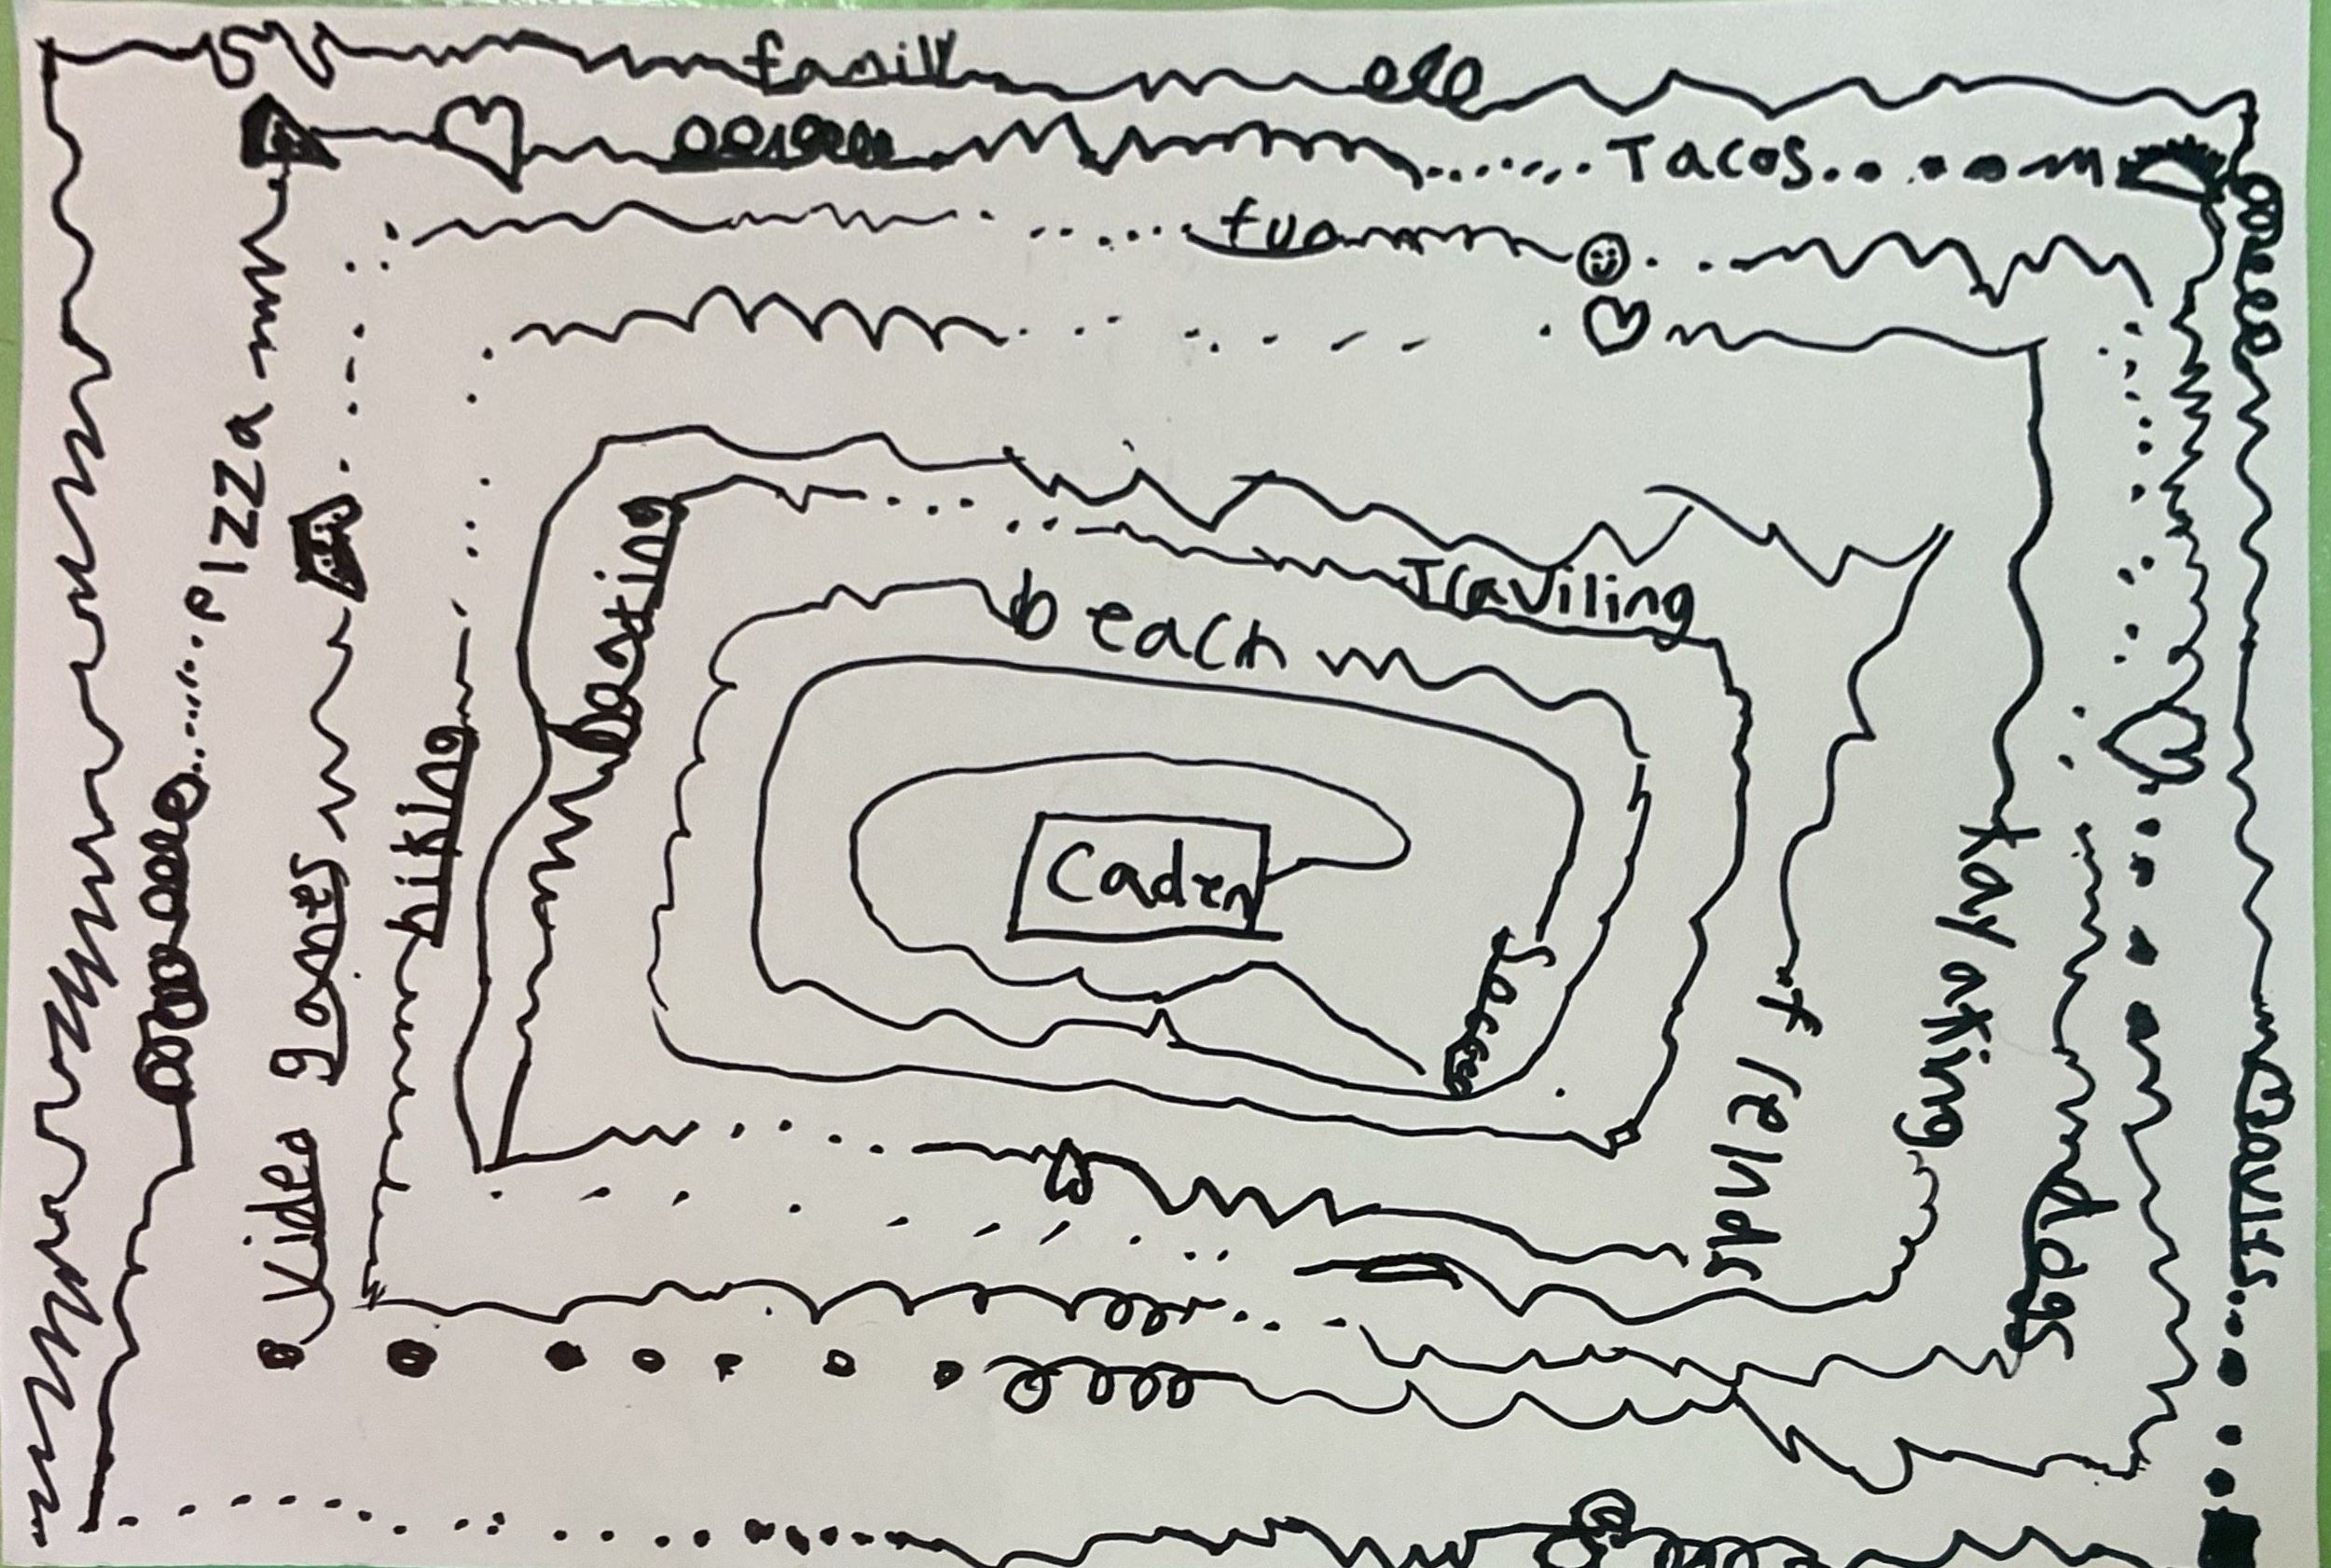 famill
Tacos
fun
PIZZA
boating
Traviling
beach
hiking
Caden
Soccer
friends
kayaking
dogs
Video games
movies